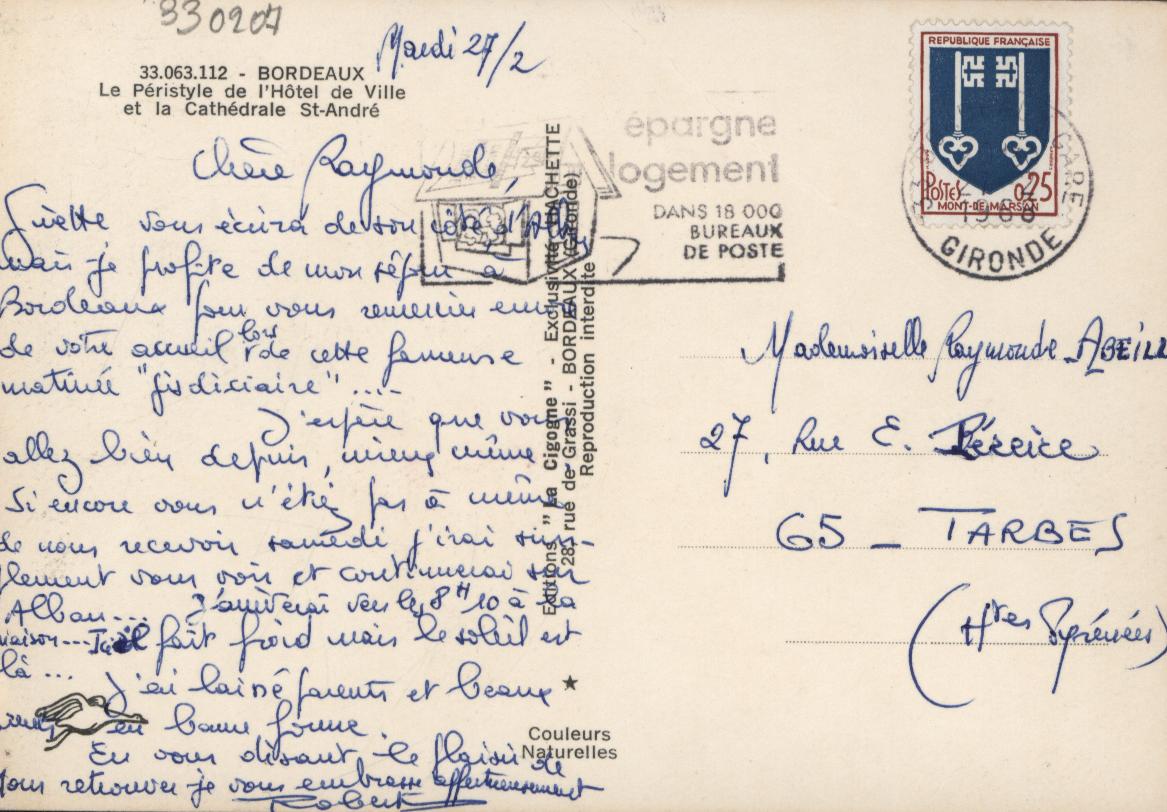 330207
Mardi 27/2
33.063.112 - BORDEAUX
Le Péristyle de l'Hôtel de Ville
et la Cathédrale St-André
Chère Raymonde,
vous écrira de son côté d'
mais je profite de mon séjour à
Bordeaux pour vous remercier encore
de votre accueil lors de cette fameuse
matinée "
J'espère que vous
allez bien depuis, mieux même
Si encore vous n'étiez pas à même
de nous recevoir samedi j'irai sim-
plement vous voir et continuerai sur
Alban... J'arriverai vers les 8H10 à la
maison... Ici il fait froid mais le soleil est
là...
J'ai laissé parents et beaux
en bonne forme.
En vous disant le plaisir de
vous retrouver je vous embrasse affectueusement
Robert
Editions "La Cigogne" - Exclusivité HACHETTE
28, rue de Grassi - BORDEAUX (Gironde)
Reproduction interdite
Couleurs
Naturelles
épargne
logement
DANS 18 000
BUREAUX
DE POSTE
REPUBLIQUE FRANÇAISE
POSTES 0,25
MONT-DE-MARSAN
GARE
1968
GIRONDE
Mademoiselle Raymonde ABEILL
27, Rue E.
65 - TARBES
(Htes Pyrénées)